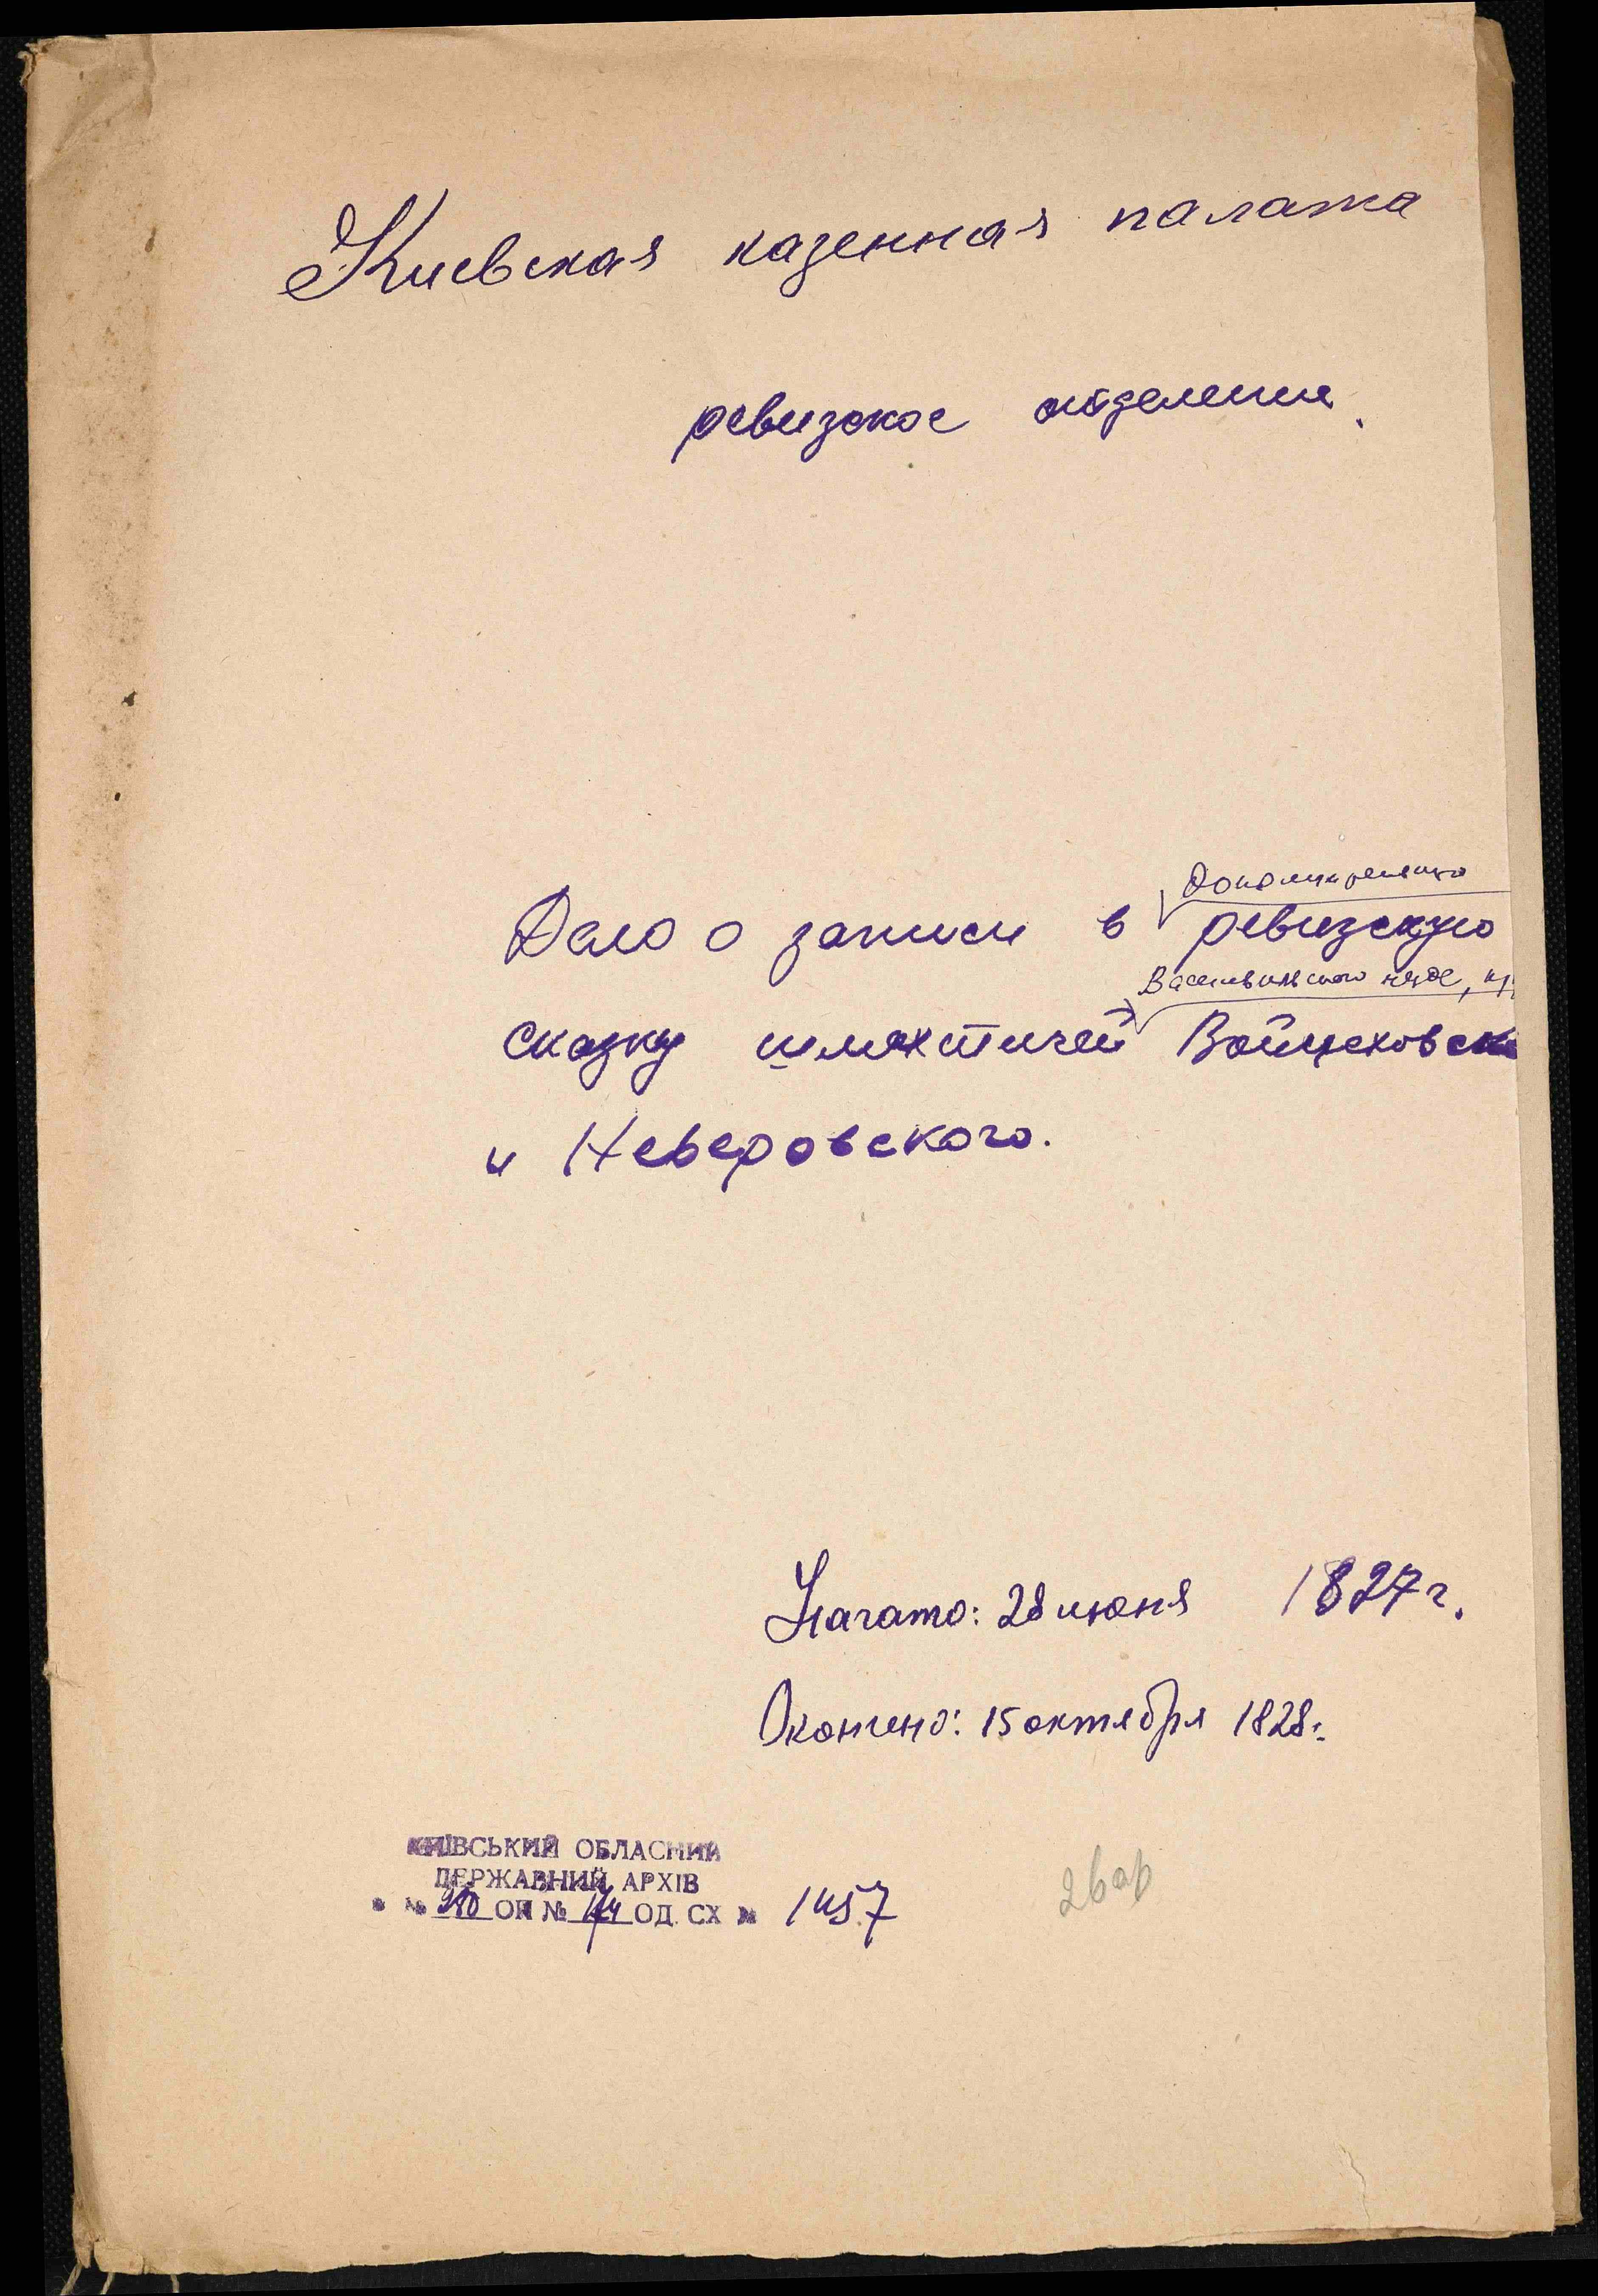 Киевская казенная палата
ревизское отделение.
дополнительную
Дело о записи в ревизскую
Васильковского уезда,
сказку шляхтичей Войцеховск
и Неверовского.
Начато: 28 июня 1827 г.
Окончено: 15 октября 1828г.
КИЇВСЬКИЙ ОБЛАСНИЙ
ДЕРЖАВНИЙ АРХІВ
№ 280 ОП № 174 ОД. СХ № 1457